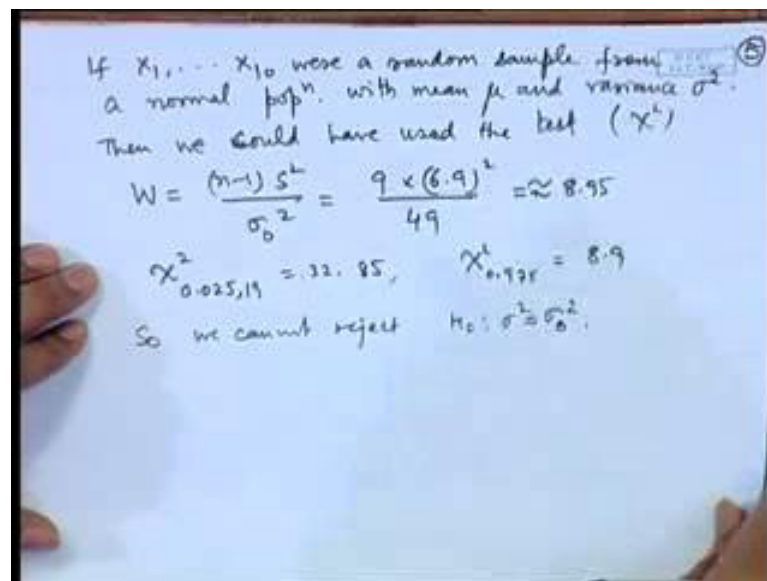 If X₁, ... X₁₀ were a random sample from
a normal popⁿ. with mean μ and variance σ².
Then we could have used the test (χ²)
W = (n-1) S² / σ₀² = 9 × (6.9)² / 49 = ≈ 8.95
χ²₀.₀₂₅,₁₉ = 32.85, χ²₀.₉₇₅ = 8.9
So we cannot reject H₀: σ² = σ₀².
5